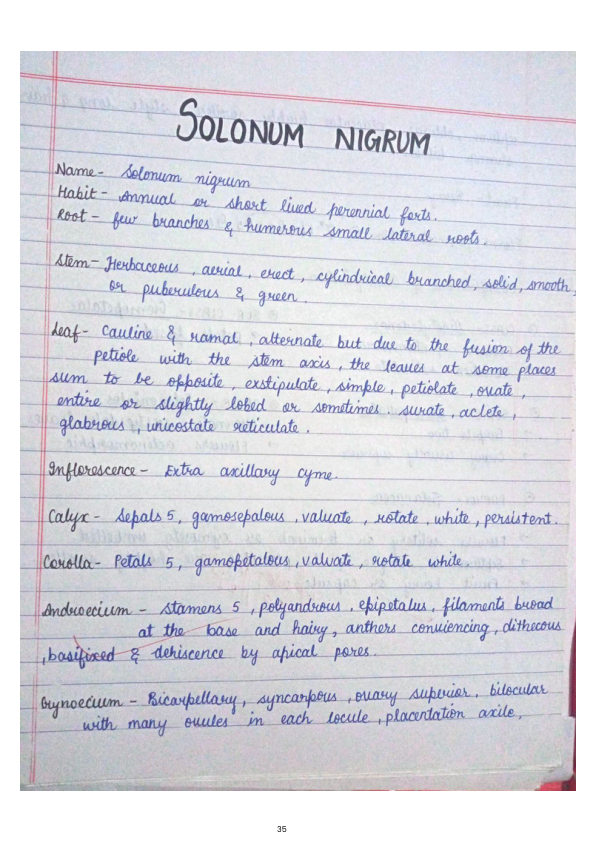 SOLONUM NIGRUM
Name - Solonum nigrum
Habit - Annual or short lived perennial forts.
Root - few branches & humerous small lateral roots.
Stem - Herbaceous, aerial, erect, cylindrical branched, solid, smooth,
or puberulous & green.
Leaf - Cauline & ramal, alternate but due to the fusion of the
petiole with the stem axis, the leaves at some places
sum to be opposite, exstipulate, simple, petiolate, ovate,
entire or slightly lobed or sometimes surate, aclete,
glabrous, unicostate reticulate.
Inflorescence - Extra axillary cyme.
Calyx - Sepals 5, gamosepalous, valuate, rotate, white, persistent.
Corolla - Petals 5, gamopetalous, valvate, rotate white.
Androecium - Stamens 5, polyandrous, epipetalus, filaments broad
at the base and hairy, anthers conviencing, dithecous
, basifixed & dehiscence by apical pores.
Gynoecium - Bicarpellary, syncarpous, ovary superior, bilocular
with many ovules in each locule, placentation axile,
35